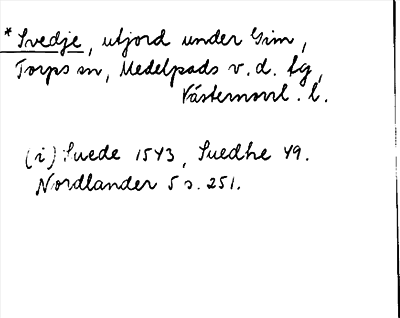 *Svedje, utjord under Gim,
Torps sn, Medelpads v. d. tg,
Västernorrl. l.
(i) Suede 1543, Suedhe 49.
Nordlander 5 s. 251.